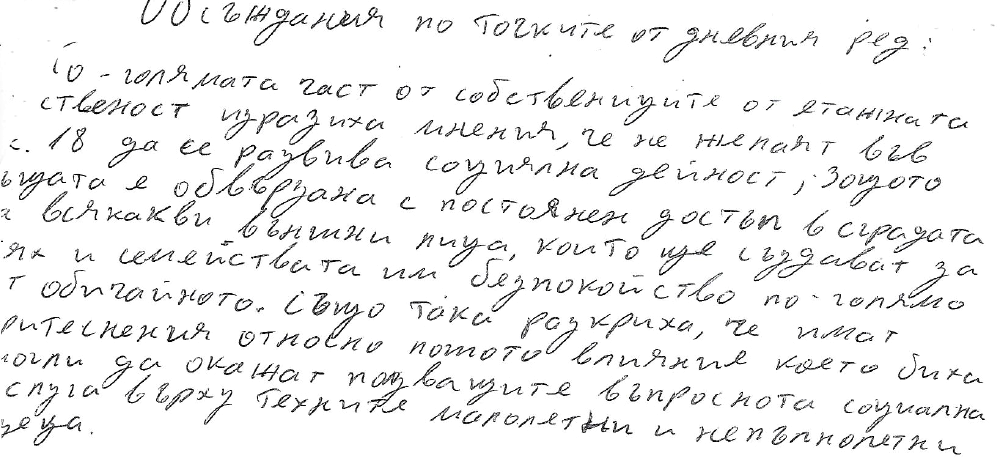 Обсъждания по точките от дневния ред:
По-голямата част от собствениците от етажната
ственост изразиха мнения, че не желаят във
с. 18 да се развива социялна дейност, защото
ъщата е обвързана с постоянен достъп в сградата
а всякакви външни лица, които ще създават за
ях и семействата им безпокойство по-голямо
т обичайното. Също така разкриха, че имат
ритеснения относно лошото влияние което биха
могли да окажат ползващите въпроснота социална
слуга върху техните малолетни и непълнолетни
деца.